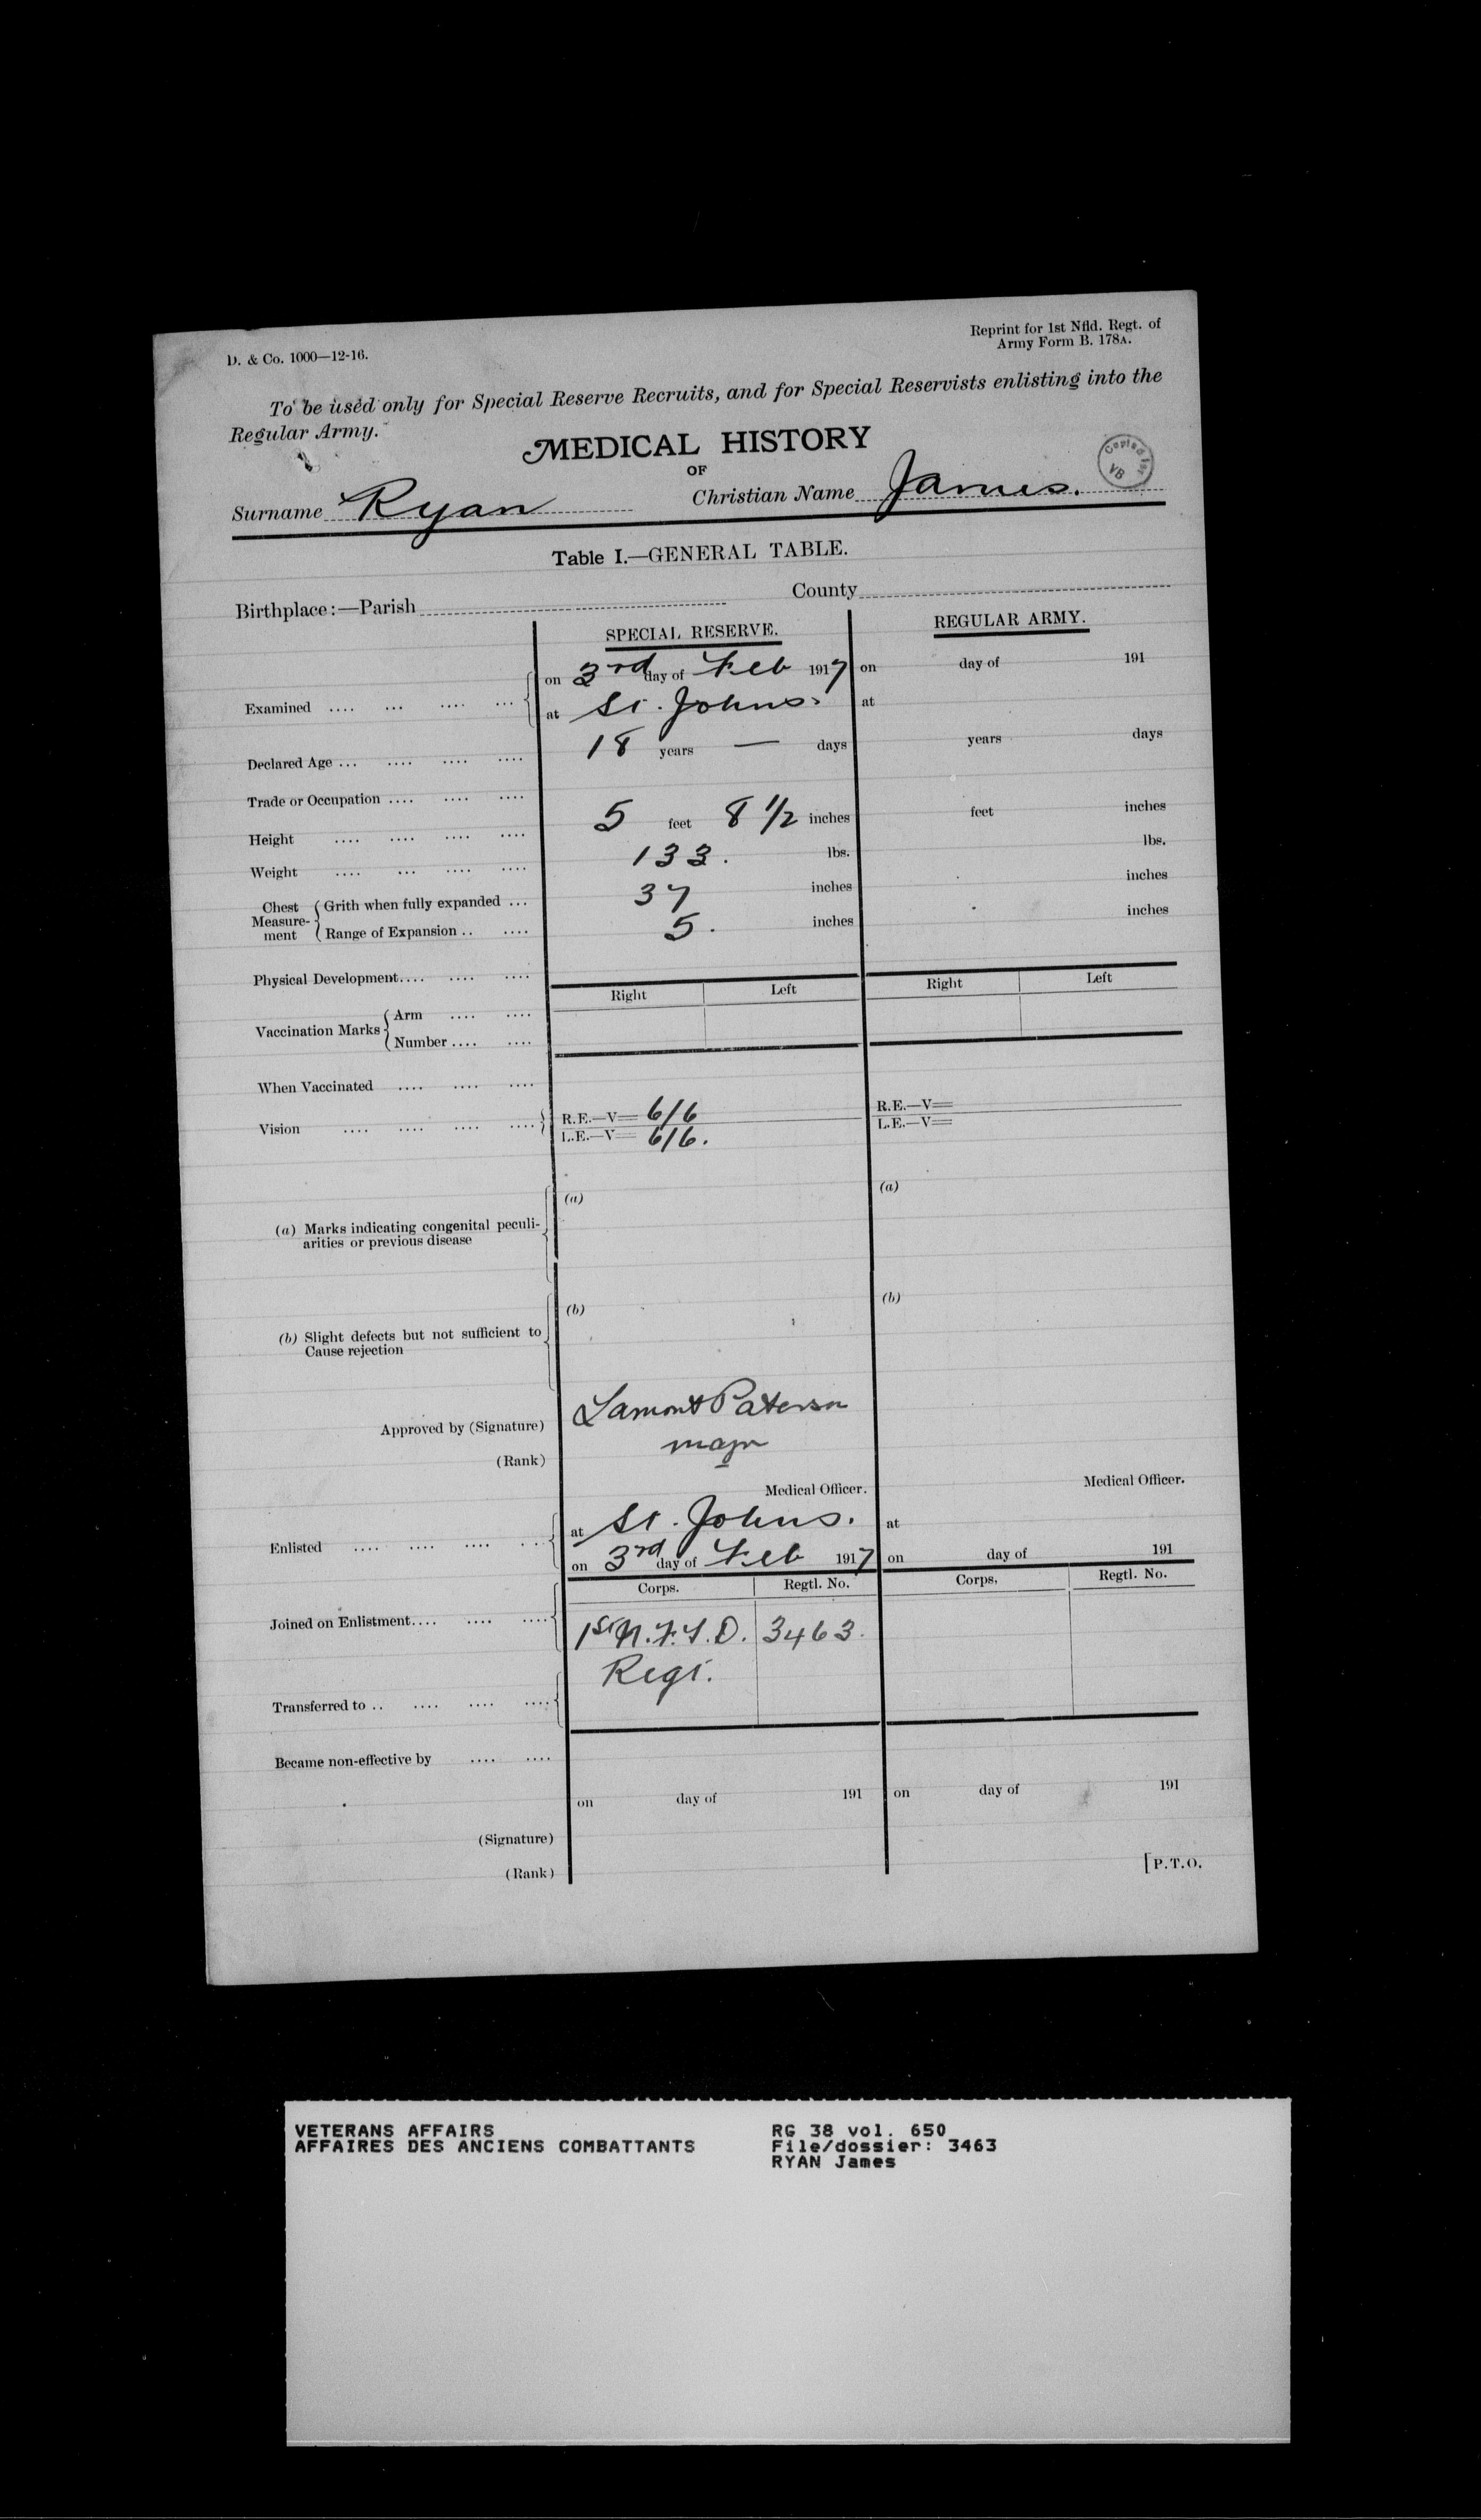 D. & Co. 1000—12-16.
Reprint for 1st Nfld. Regt. of
Army Form B. 178A.
To be used only for Special Reserve Recruits, and for Special Reservists enlisting into the
Regular Army.
MEDICAL HISTORY
OF
Surname Ryan Christian Name James.
Copied
VB
Table I.—GENERAL TABLE.
Birthplace:—Parish County
SPECIAL RESERVE. REGULAR ARMY.
Examined .... ... .... ... on 3rd day of Feb 1917 on day of 191
at St. Johns. at
Declared Age ... .... .... .... 18 years — days years days
Trade or Occupation .... .... ....
Height .... .... .... .... 5 feet 8 1/2 inches feet inches
Weight .... ... .... .... 133. lbs. lbs.
Chest Measure-ment Grith when fully expanded ... 37 inches inches
Range of Expansion .. .... 5. inches inches
Physical Development.... .... ....
Right Left Right Left
Vaccination Marks Arm .... ....
Number .... ....
When Vaccinated .... .... ....
Vision .... .... .... .... R.E.—V= 6/6 R.E.—V=
L.E.—V= 6/6. L.E.—V=
(a) Marks indicating congenital peculi-
arities or previous disease
(a) (a)
(b) Slight defects but not sufficient to
Cause rejection
(b) (b)
Approved by (Signature) Lamont Paterson
(Rank) major
Medical Officer. Medical Officer.
Enlisted .... .... .... ... at St. Johns. at
on 3rd day of Feb 1917 on day of 191
Corps. Regtl. No. Corps. Regtl. No.
Joined on Enlistment.... .... .... 1st N.F.L.D. 3463.
Regt.
Transferred to .. .... .... ....
Became non-effective by .... ....
on day of 191 on day of 191
(Signature)
(Rank)
[P.T.O.
VETERANS AFFAIRS RG 38 vol. 650
AFFAIRES DES ANCIENS COMBATTANTS File/dossier: 3463
RYAN James